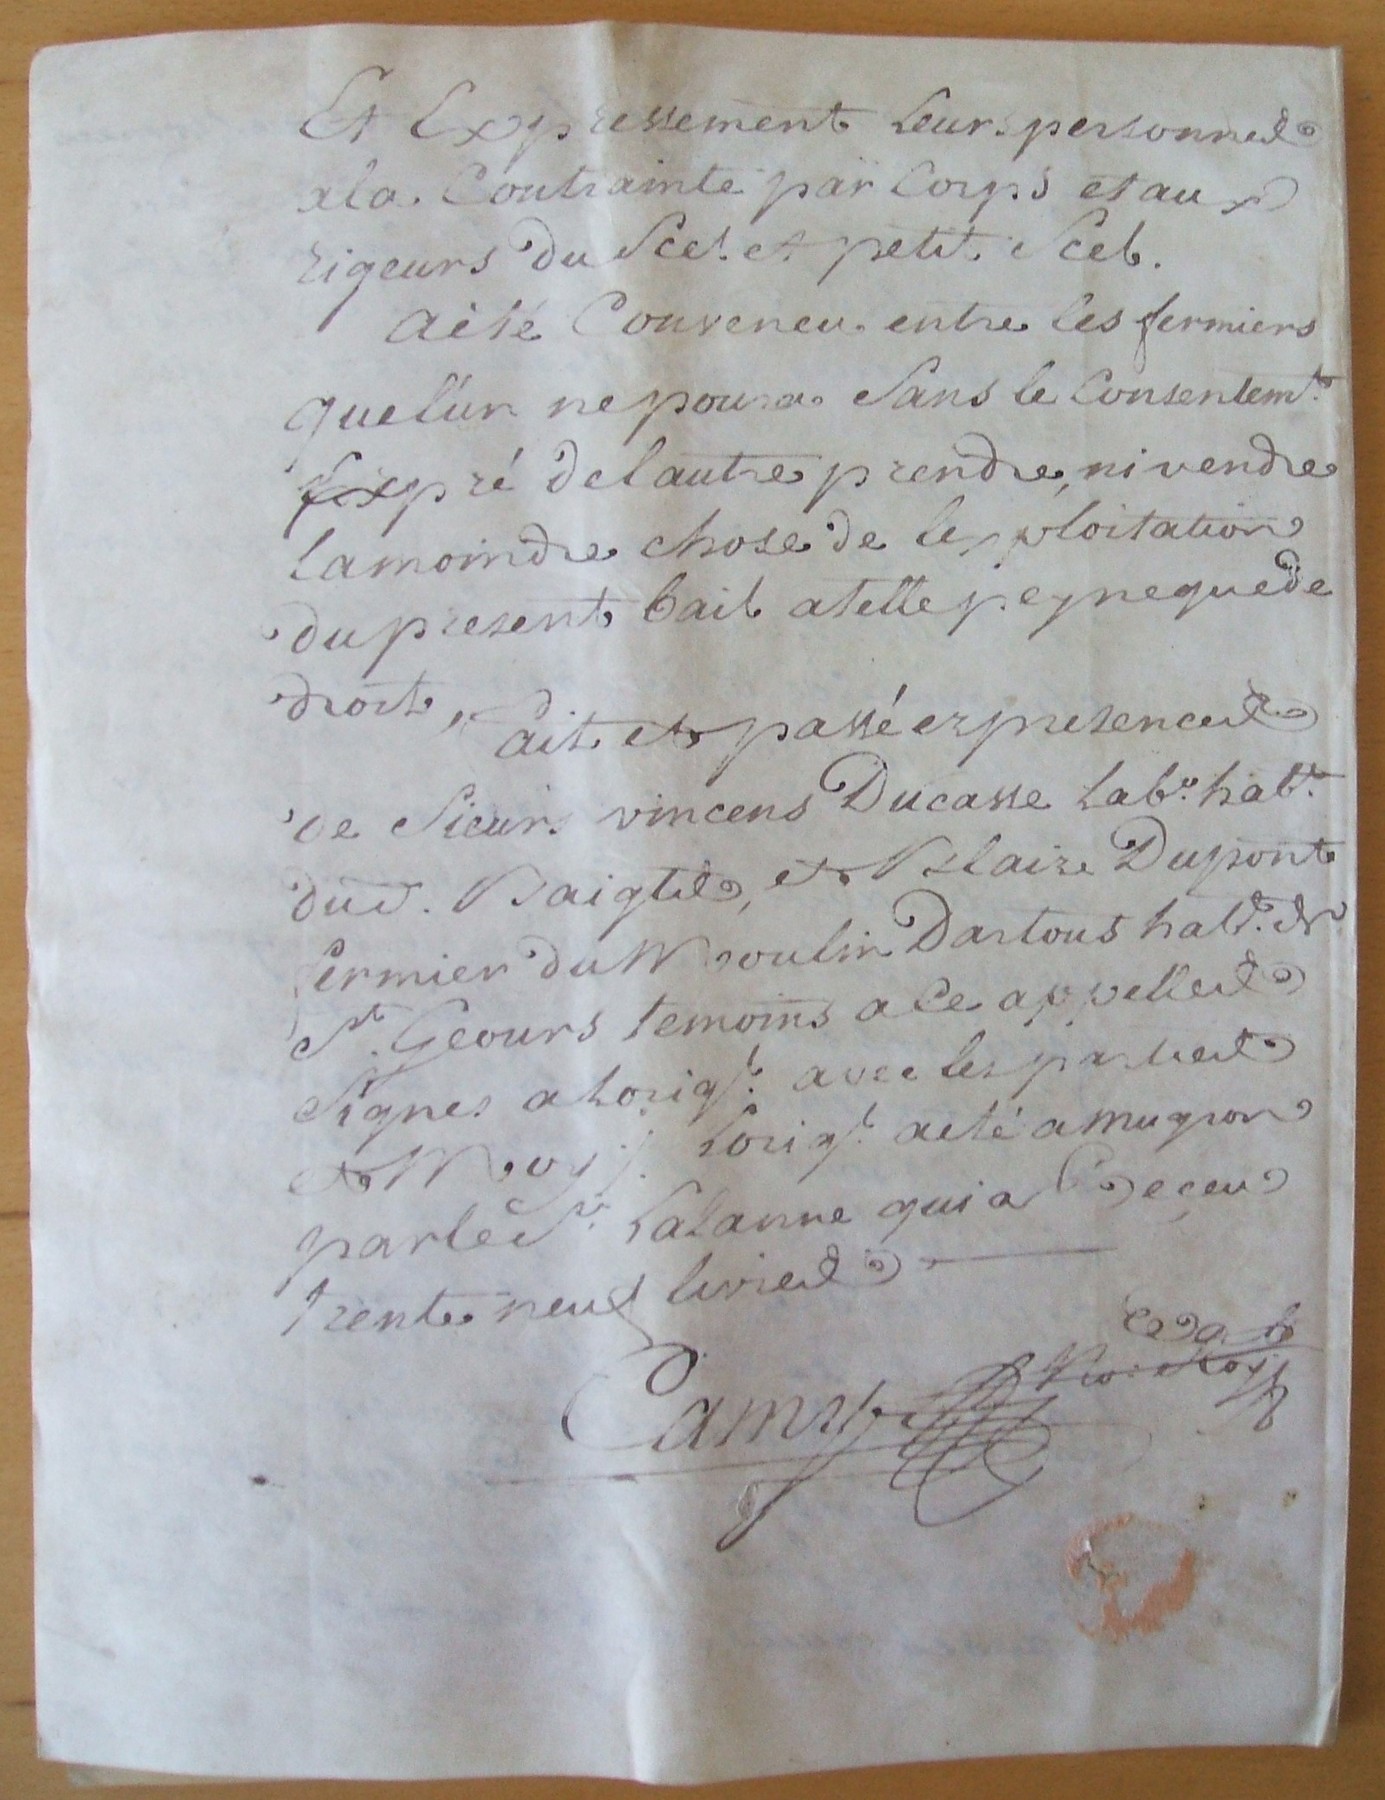 Et Expressement Leurs personnes
a la Contrainte par Corps et aux
rigeurs du Scel et petit Scel.
a été Conveneu entre les fermiers
que lun ne poura Sans le Consentemt.
Expré de lautre prendre, ni vendre
la moindre chose de lexploitation
du present bail a telle peyne que de
droit, fait et passé en presences
de Sieurs vincens Ducasse Labr. habt.
dud. Baigts, et Blaize Dupont
fermier du Moulin Dartous habt. de
St. Geours temoins a Ce appelles
Signes a Lorigl. avec les parties
et Moy. Lorigl. a eté a mugron
par le Sr. Lalanne qui a Reçeu
trente neuf livres
Camy
No. Roy